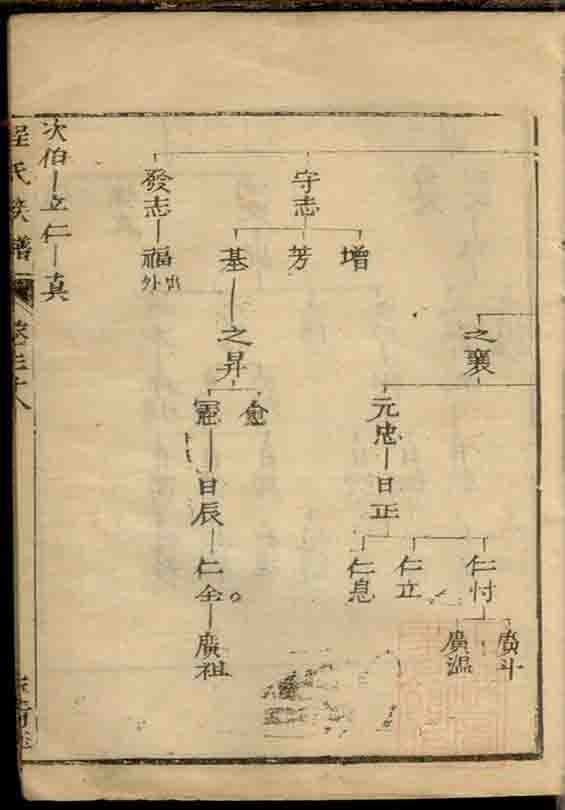 守志
增
芳
基
之昇
愈
憲
日辰
仁全
廣祖
之襄
元忠
日正
仁付
仁立
仁息
廣斗
廣温
發志
福
出外
次伯
立仁
真
程氏族譜